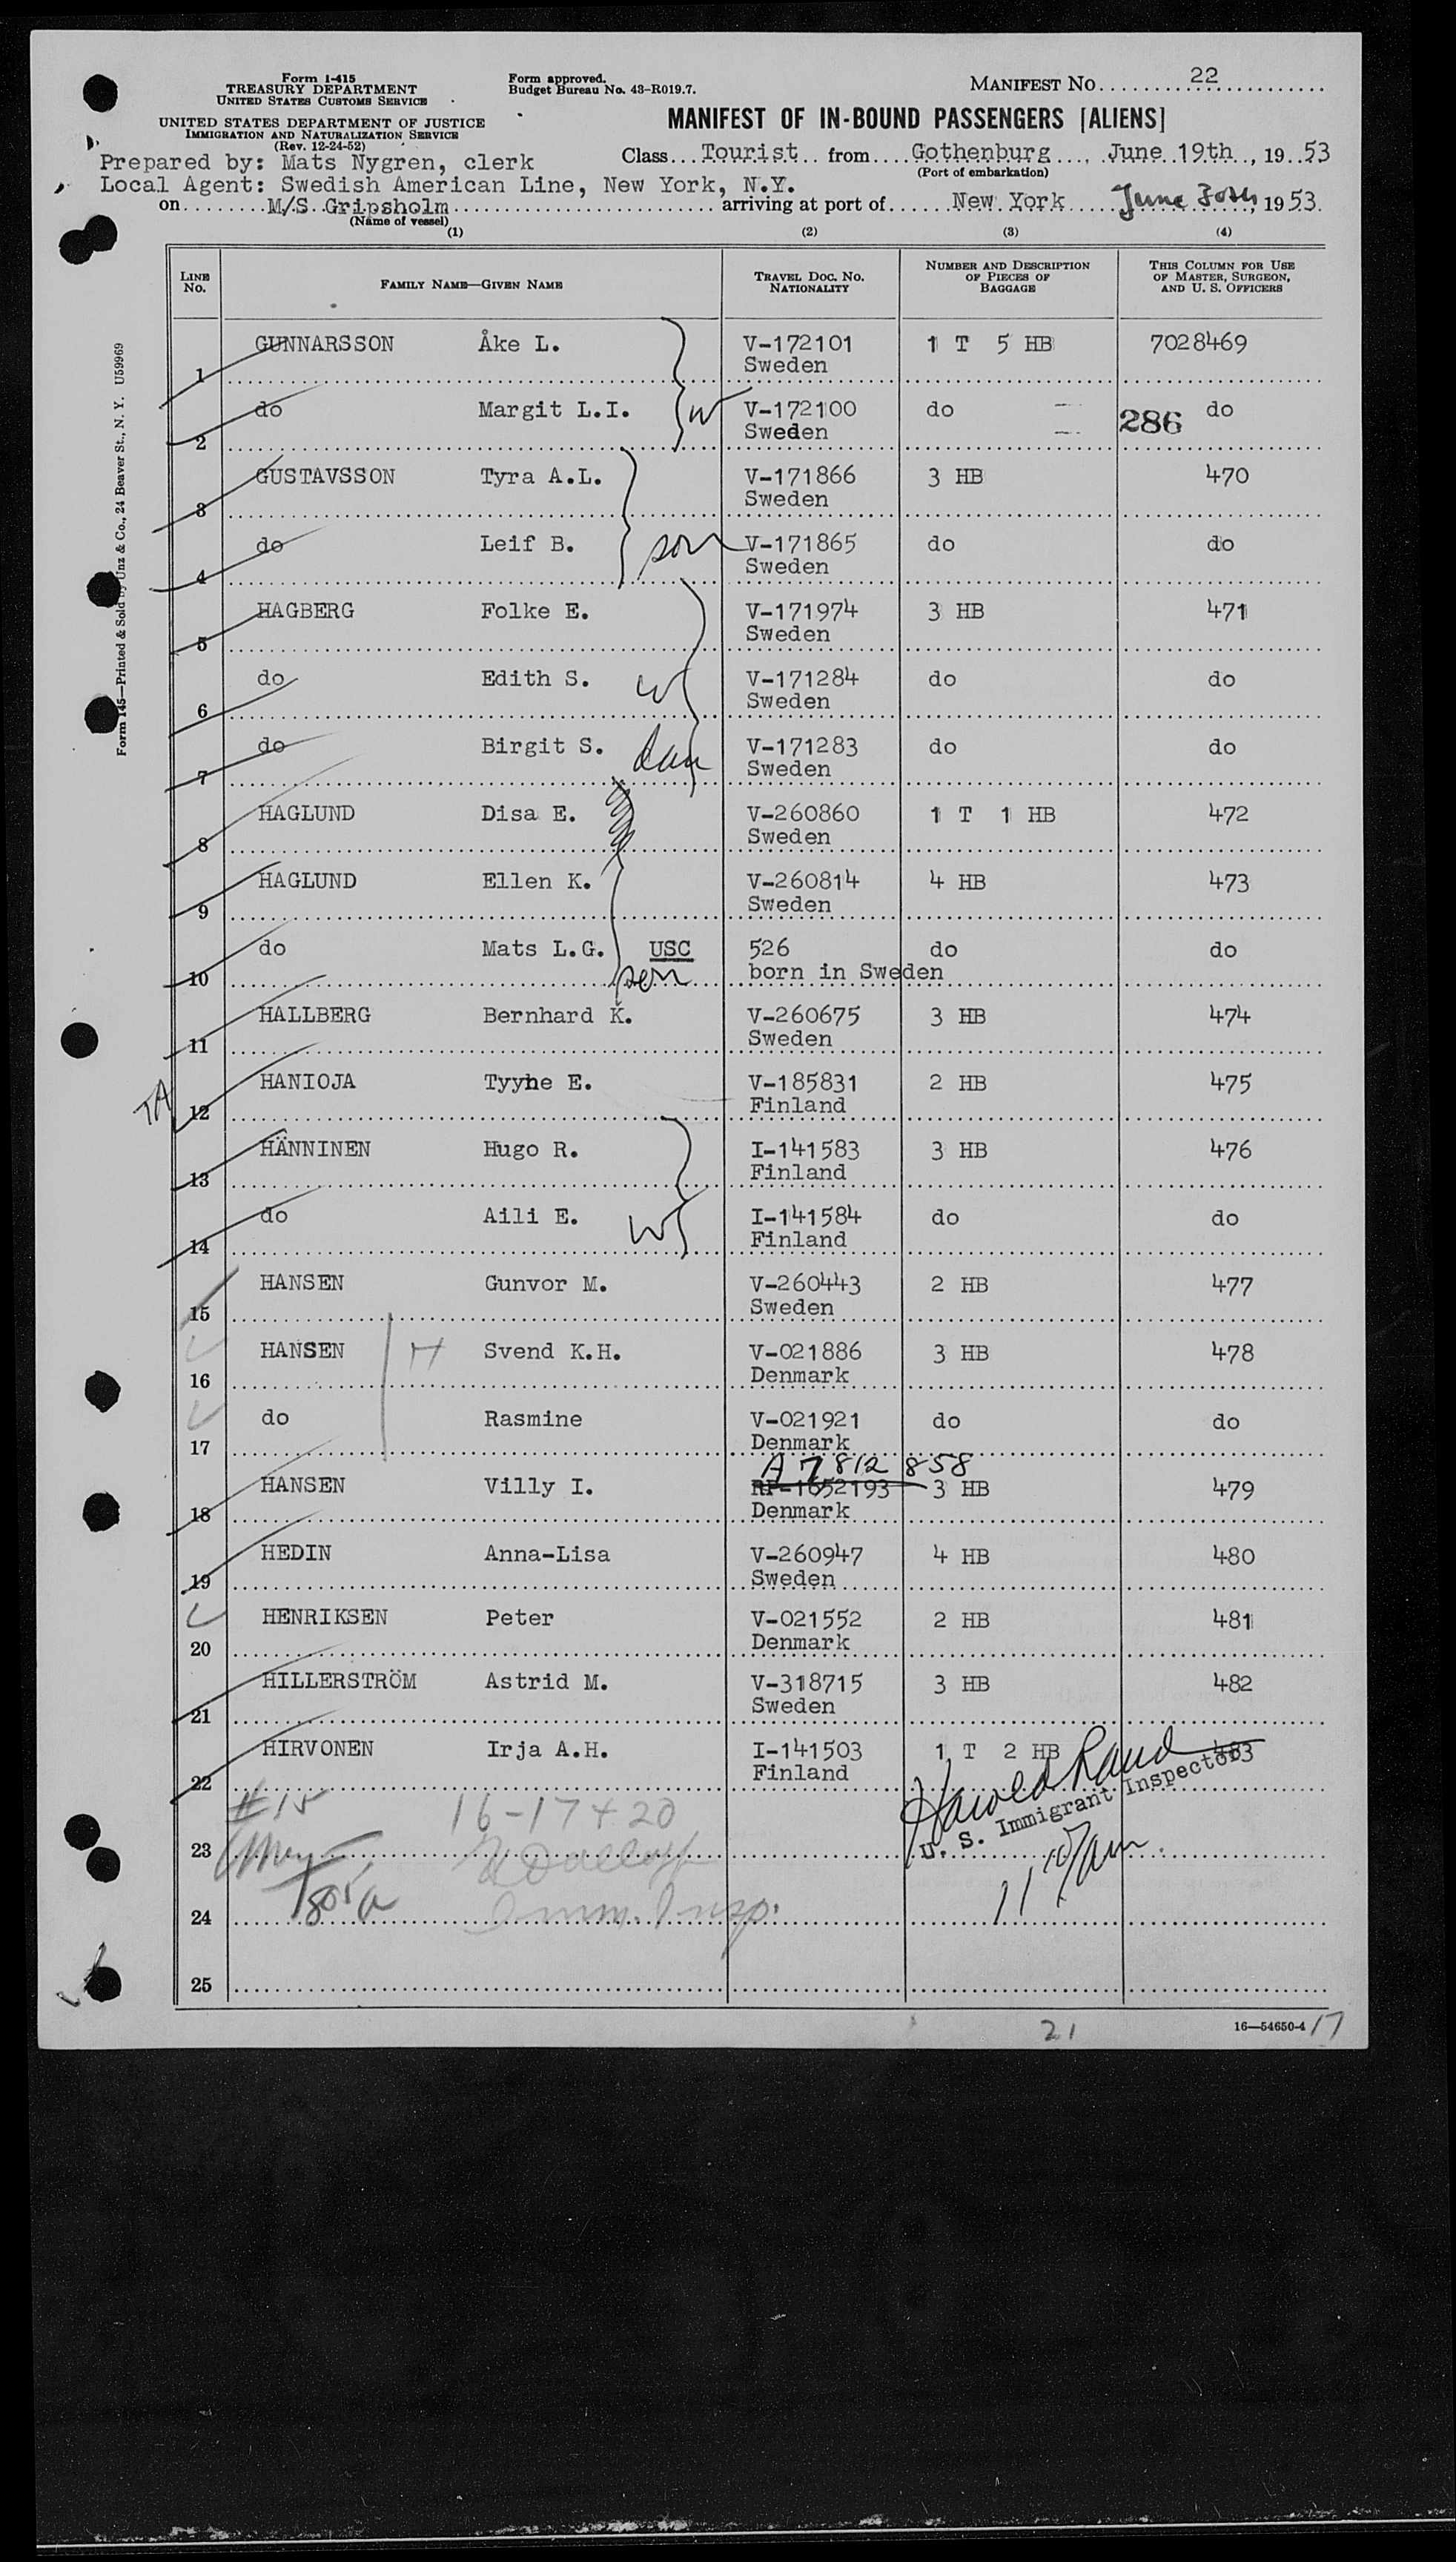 Form I-415
TREASURY DEPARTMENT
UNITED STATES CUSTOMS SERVICE
UNITED STATES DEPARTMENT OF JUSTICE
IMMIGRATION AND NATURALIZATION SERVICE
(Rev. 12-24-52)
Form approved.
Budget Bureau No. 43-R019.7.
MANIFEST NO. 22
MANIFEST OF IN-BOUND PASSENGERS [ALIENS]
Prepared by: Mats Nygren, clerk
Class Tourist from Gothenburg, June 19th, 1953
(Port of embarkation)
Local Agent: Swedish American Line, New York, N.Y.
on M/S Gripsholm arriving at port of New York June 30th, 1953.
(Name of vessel)
(1) (2) (3) (4)
LINE NO. FAMILY NAME—GIVEN NAME TRAVEL DOC. NO. NATIONALITY NUMBER AND DESCRIPTION OF PIECES OF BAGGAGE THIS COLUMN FOR USE OF MASTER, SURGEON, AND U. S. OFFICERS
1 GUNNARSSON Åke L. V-172101 1 T 5 HB 7028469
Sweden
2 do Margit L.I. W V-172100 do 286 do
Sweden
3 GUSTAVSSON Tyra A.L. V-171866 3 HB 470
Sweden
4 do Leif B. son V-171865 do do
Sweden
5 HAGBERG Folke E. V-171974 3 HB 471
Sweden
6 do Edith S. W V-171284 do do
Sweden
7 do Birgit S. dau V-171283 do do
Sweden
8 HAGLUND Disa E. V-260860 1 T 1 HB 472
Sweden
9 HAGLUND Ellen K. V-260814 4 HB 473
Sweden
10 do Mats L.G. USC 526 do do
son born in Sweden
11 HALLBERG Bernhard K. V-260675 3 HB 474
Sweden
TA
12 HANIOJA Tyyne E. V-185831 2 HB 475
Finland
13 HÄNNINEN Hugo R. I-141583 3 HB 476
Finland
14 do Aili E. W I-141584 do do
Finland
15 HANSEN Gunvor M. V-260443 2 HB 477
Sweden
16 HANSEN H Svend K.H. V-021886 3 HB 478
Denmark
17 do Rasmine V-021921 do do
Denmark
A7 812 858
18 HANSEN Villy I. RP-1652193 3 HB 479
Denmark
19 HEDIN Anna-Lisa V-260947 4 HB 480
Sweden
20 HENRIKSEN Peter V-021552 2 HB 481
Denmark
21 HILLERSTRÖM Astrid M. V-318715 3 HB 482
Sweden
22 HIRVONEN Irja A.H. I-141503 1 T 2 HB 483
Finland
Harold Rand
U. S. Immigrant Inspector
#15 16-17+20
23
Imm. Insp.
24
25
21
16—54650-4 17
Form 145—Printed & Sold by Unz & Co., 24 Beaver St., N. Y. U59969